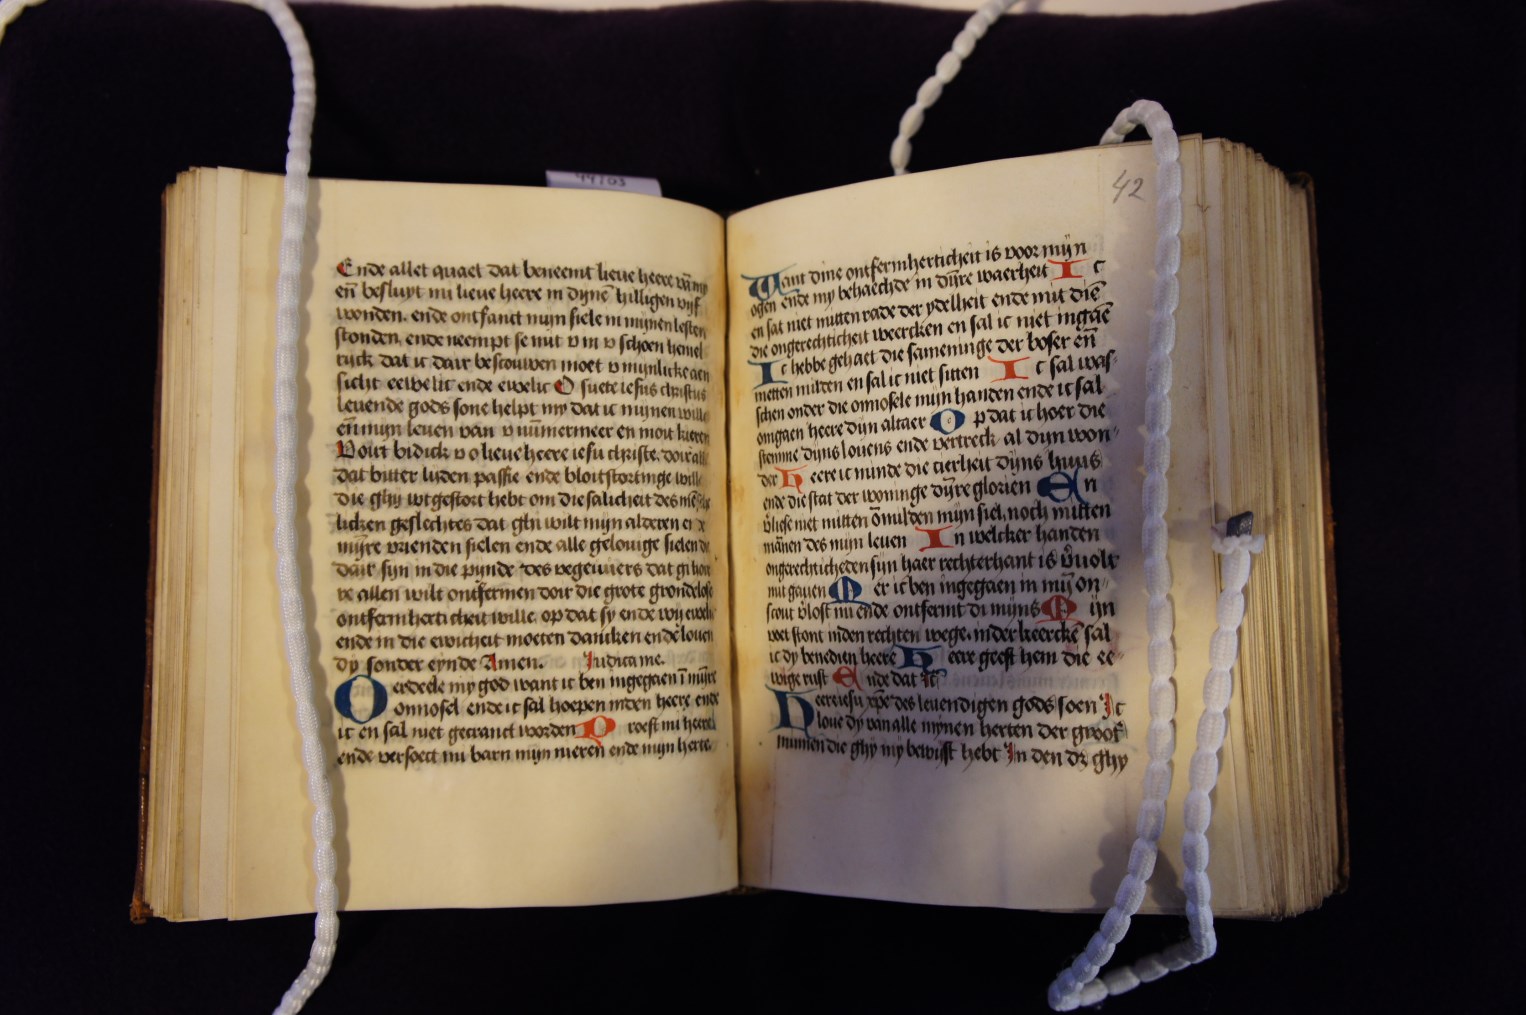 Ende allet quaet dat beneemt lieue heere vā my
eñ besluyt mi lieue heere in dynē hilligen vijf
wonden. ende ontfanct mijn siele in mijnen lesten
stonden. ende neempt se mit v in v schoen hemel
rijck dat ic dair bescouwen moet v mijnlicke aen
sicht eewelic ende ewelic O suete iesus christus
leuende gods sone helpt my dat ic mijnen wille
eñ mijn leuen van v nūmermeer en moit kieren
Voirt bidick v o lieue heere iesu christe. doir all
dat bitter liden passie ende bloitstortinge wille
die ghy wtgestort hebt om die salicheit des
licken geslechtes dat ghi wilt mijn alderen
mijre vrienden sielen ende alle gelouige sielen die
dair sijn in die pijnde des vegeuiers dat gi hom
re allen wilt ontfermen doir die grote grondelose
ontfermherticheit wille. op dat sy ende wij
ende in die ewicheit moeten dancken ende louen
dy sonder eynde Amen. Iudica me.
Oerdeele my god want ic ben ingegaen ī mijre
onnosel ende ic sal hoepen inden heere. ende
ic en sal niet gecranct worden Proeft mi heere
ende versoect mi barn mijn nieren ende mijn herte
42
Want dine ontfermherticheit is voor mijn
ogen ende my behaechde in dijre waerheit Ic
en sat niet mitten rade der ydelheit ende mit diē
die ongerechticheit weercken en sal ic niet ingaē
Ic hebbe gehaet die sameninge der boser eñ
metten milden en sal ic niet sitten Ic sal was-
schen onder die onnosele mijn handen ende ic sal
omgaen heere dijn altaer Op dat ic hoer die
stemme dijns louens ende vertreck al dijn won-
der Heere ic minde die cierheit dijns huus
ende die stat der woninge dijre glorien En
v̄liese niet mitten ōmilden mijn siel, noch mitten
mānen des mijn leuen In welcker handen
ongerechticheden sijn haer rechterhant is v̄uolt
mit gauen Mer ic ben ingegaen in mij on-
scout v̄lost mi ende ontfermt di mijns Mijn
voet stont inden rechten wege. inder keerckē sal
ic dy benedien heere Heere geeft hem die ee-
wige rust Ende dat
Heere iesu xp̄e des leuendigen gods soen Ic
loue dy van alle mynen herten der groot
minnen die ghy my bewijst hebt In den dz ghy